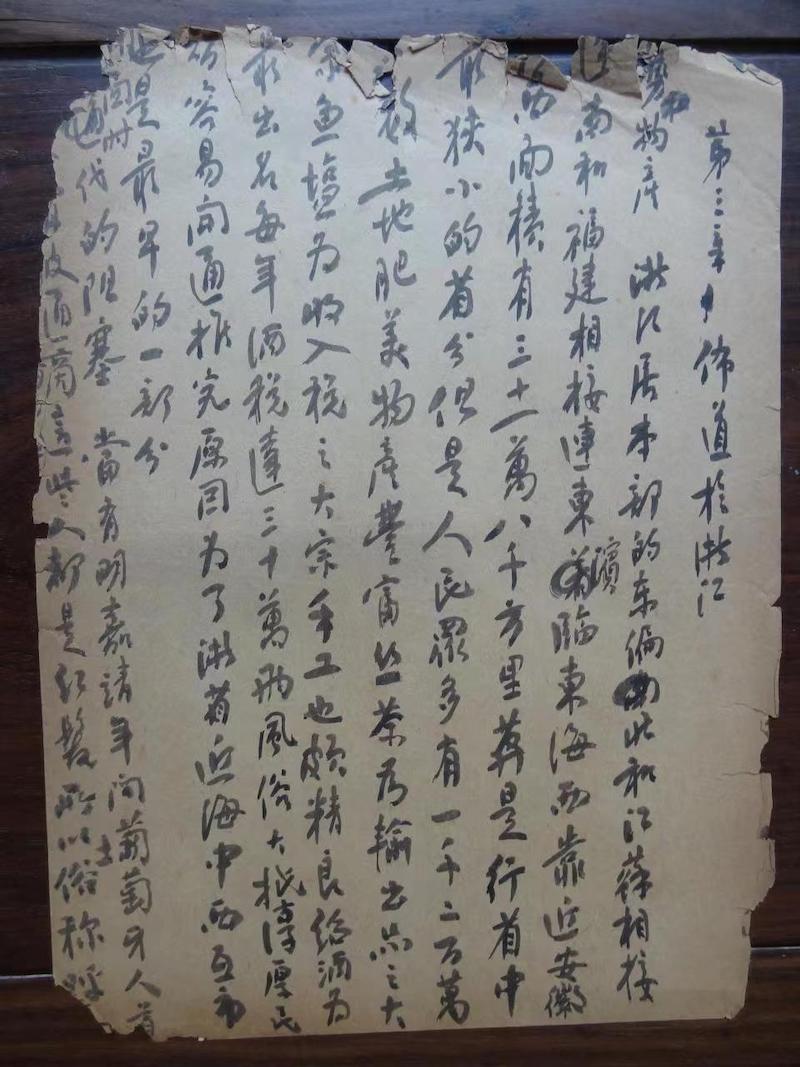 第三章 佈道於浙江
勢物產 浙江居本部的东偏北和江蘇相接
南和福建相接連東濱臨東海西靠近安徽
西面積有三十一萬八千方里算是行省中
最狹小的省分但是人民眾多有一千二百萬
土地肥美物產豐富丝茶為輸出品之大
魚塩为收入税之大宗手工也頗精良绍酒为
最出名每年酒税達三十萬兩風俗大抵淳厚民
容易開通推究原因为了浙省近海中西互市
也是最早的一部分
代的阻塞 當有明嘉靖年间葡萄牙人首
通商這些人都是红髮所以俗称呼